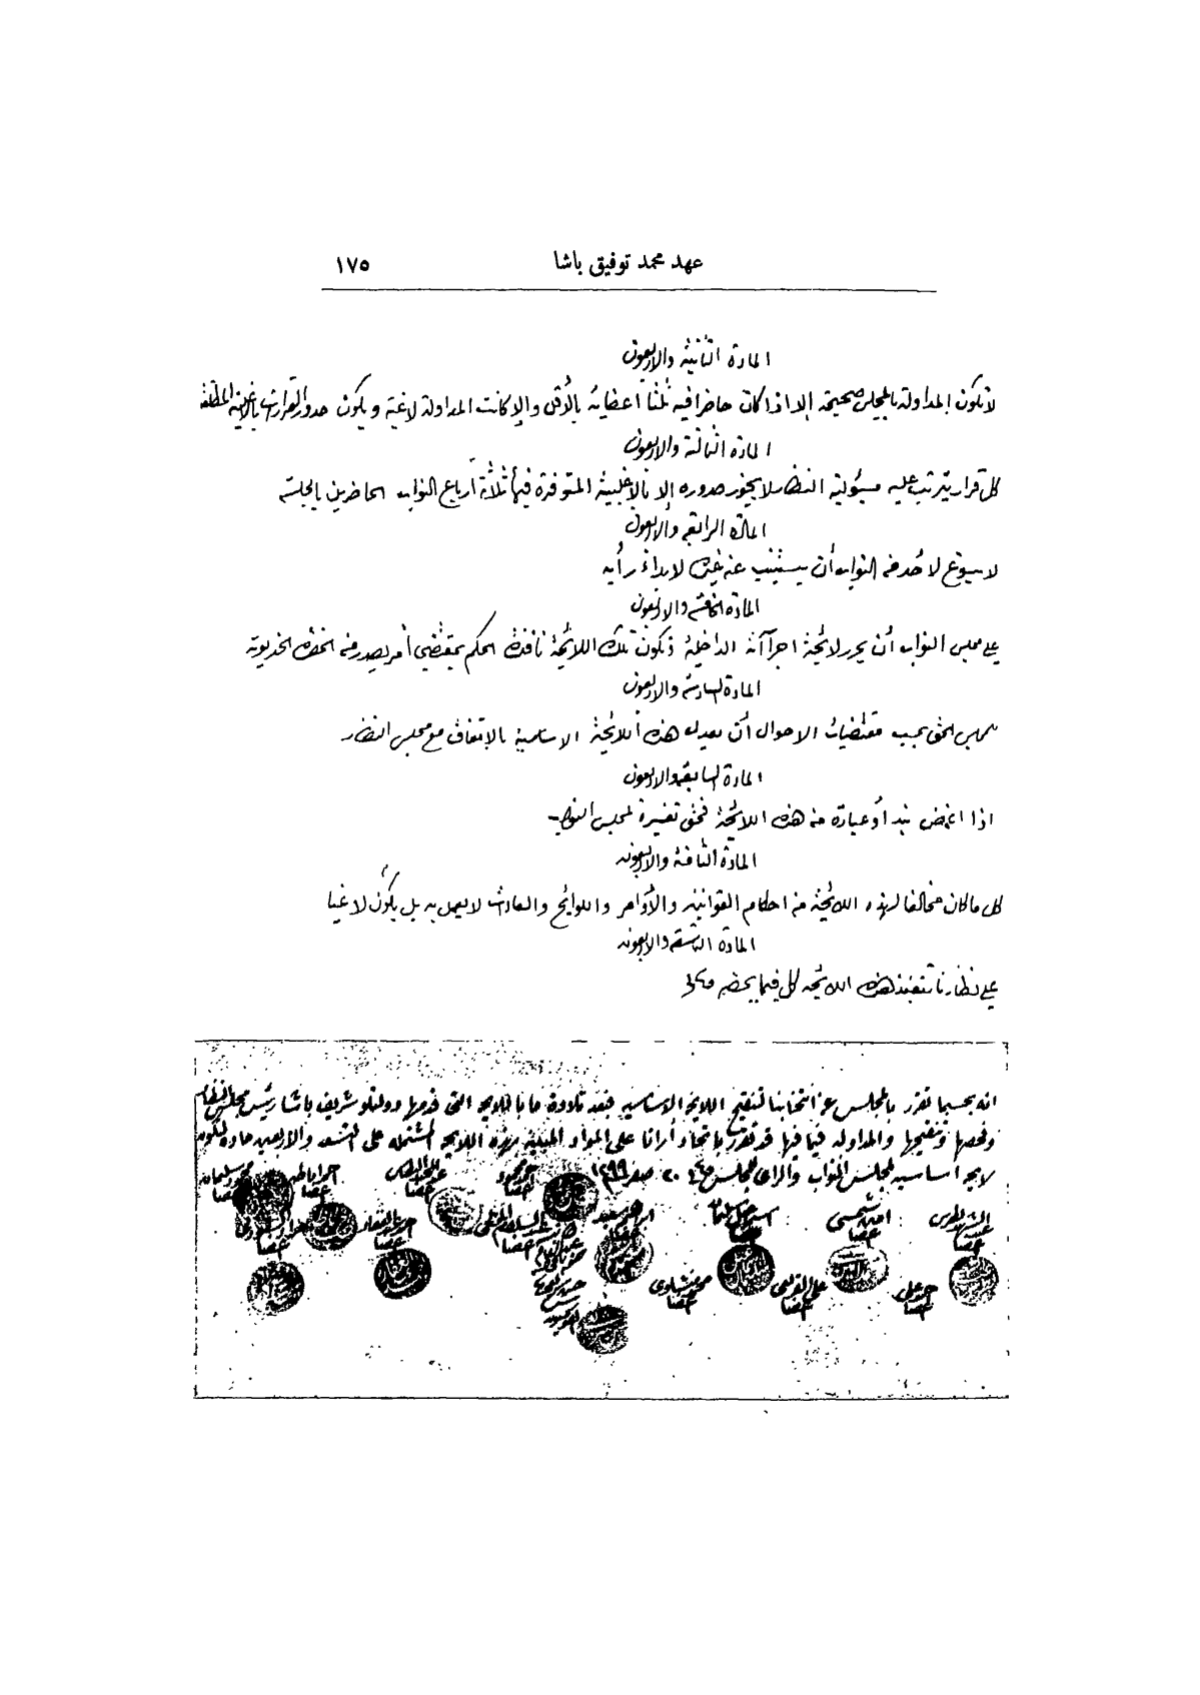 عهد محمد توفيق باشا ١٧٥
المادة الثانية والاربعون
لا تكون المداولة بالمجلس صحيحة إلا اذا كان حاضرا فيه ثلثا أعضائه بالأقل والا كانت المداولة لاغية ويكون صدور القرارات بالأغلبية المطلقة
المادة الثالثة والاربعون
كل قرار يترتب عليه مسئولية النظار لا يجوز صدوره إلا بالاغلبية المتوفرة فيها ثلاثة أرباع النواب الحاضرين بالجلسة
المادة الرابعة والاربعون
لا يسوغ لأحد من النواب أن يستنيب عنه غيره لابداء رأيه
المادة الخامسة والاربعون
على مجلس النواب أن يحرر لائحة اجراآته الداخلية وتكون تلك اللائحة نافذة الحكم بمقتضى أمر يصدر من الحضرة الخديوية
المادة السادسة والاربعون
لمجلس الحق بحسب مقتضيات الاحوال أن يعدل هذه اللائحة الاساسية بالاتفاق مع مجلس النظار
المادة السابعة والاربعون
اذا اغمض بند أو عبارة من هذه اللائحة فحق تفسيره لمجلس النواب
المادة الثامنة والاربعون
كل ما كان مخالفا لهذه اللائحة من احكام القوانين والأوامر واللوائح والعادات لا يعمل به بل يكون لاغيا
المادة التاسعة والاربعون
على نظارنا تنفيذ هذه اللائحة كل فيما يخصه
انه بحسبما تقرر بالمجلس عن انتخابنا لتنقيح اللايحه الاساسيه فبعد تلاوة ما باللايحه التى قدمها دولتلو شريف باشا رئيس مجلس النظار
وفحصها وتنقيحها والمداوله فيما فيها قد تقرر باتحاد أرائنا على المواد المبينه بهذه اللايحه المشتمله على التسعه والاربعين ماده لتكون
لايحه اساسيه لمجلس النواب والراى للمجلس ٢٠ صفر ١٢٩٩
محمد سليمان عضا
احمد اباظه عضا
احمد محمود عضا
عضا
عبد السلام المويلحى عضا
ابراهيم سعيد عضا
اسماعيل سليمان عضا
امين شمسى عضا
عضا
محمد منشاوى عضا
على القريعى عضا
احمد على عضا